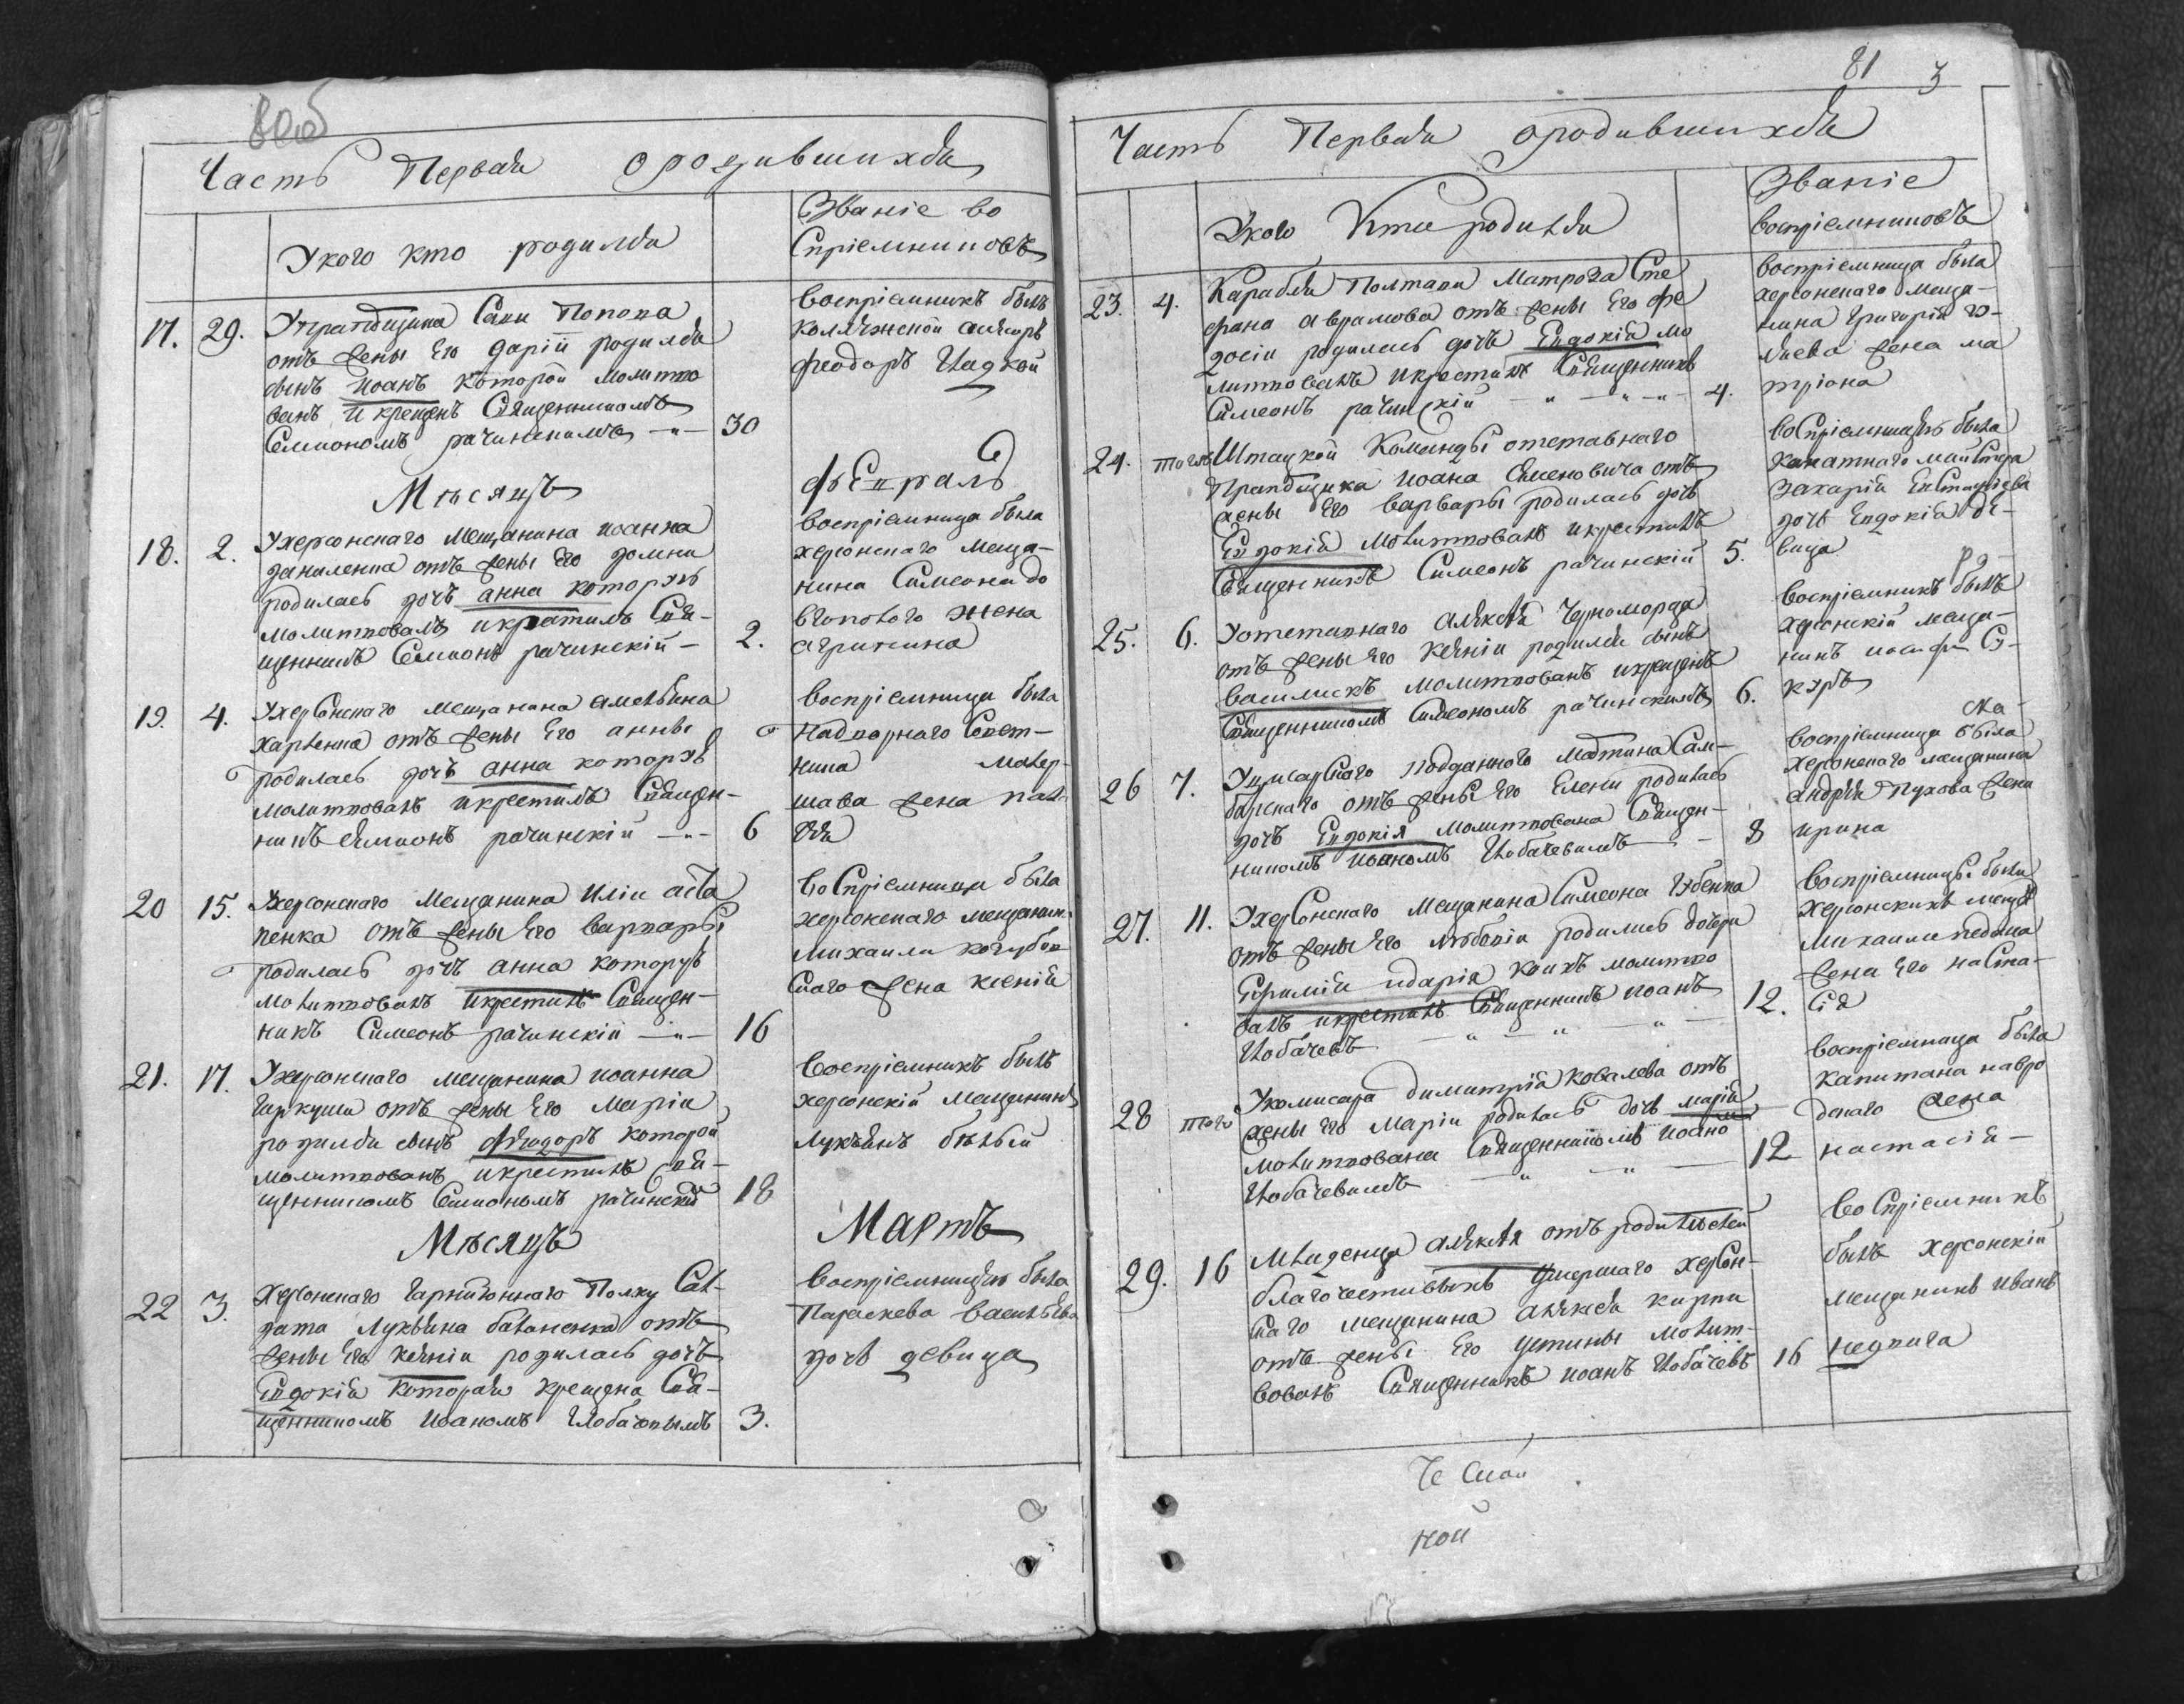 80об
Часть Первая о родившихся
У кого кто родился
Званіе во
спріемниковъ
17. 29. У прапорщика Савы Попова
отъ жены его Дарїи родился
сынъ Иоанъ которой молитво
ванъ и крещенъ Священникомъ
Семионом рачинскимъ 30
воспріемникъ былъ
Феодоръ
Мѣсяцъ Февраль
18. 2. У херсонскаго мещанина иоанна
даниленка отъ жены его домни
родилась дочь анна которую
молитвовалъ и крестилъ Свя-
щенникъ Семионъ рачинскій 2.
воспріемница была
херсонскаго меща-
нина Симеона до
вгополого жена
агрипина
19. 4. У херсонскаго мещанина емельяна
карпенка отъ жены его анны
родилась дочь анна которую
молитвовалъ и крестилъ Священ-
никъ Симионъ рачинскій 6
воспріемница была
надворнаго Совет-
ника
жена
20 15. У херсонскаго мещанина Иліи аста
пенка отъ жены его варвары
родилась дочь анна которую
молитвовалъ и крестилъ Священ-
никъ Симеонъ рачинскій 16
воспріемница была
херсонскаго мещанин.
михаила кочубей
скаго жена ксенія
21. 17. У херсонскаго мещанина иоанна
гаркуши отъ жены его Маріи
родился сынъ Феодоръ которой
молитвованъ и крестилъ Свя-
щенникомъ Семиономъ рачинскій 18
воспріемникъ былъ
херсонскій мещанинъ
лукьянъ бѣлый
Мѣсяцъ Мартъ
22 3. Херсонскаго гарнизоннаго Полку Сал-
дата Лукьяна баланенка отъ
жены его ксеніи родилась дочь
Евдокія которая крещена Свя-
щенникомъ Иоаномъ Глобачовымъ 3.
воспріемницею была
Параскева васильева
дочь девица
81 3
Часть Первая о родившихся
У кого Кто родился
Званіе
воспріемниковъ
23. 4. Карабля Полтави Матроза Сте
фана аврамова отъ жены его Фе
досіи родилась дочь Евдокія мо
литвовалъ и крестилъ Священникъ
Симеонъ рачинскій 4.
воспріемница была
херсонскаго меща-
нина Григорія го-
лиева жена ма
тріона
24. тогожъ Штацкой Команды отставнаго
Прапорщика иоана Семеновича отъ
жены его варвары родилась дочь
Евдокія молитвовалъ и крестилъ
Священникъ Симеонъ рачинскій 5.
воспріемницею была
канатнаго майстра
Захарія Евстафіева
дочь Евдокія де-
вица
25. 6. У отставнаго алексея Черноморца
отъ жены его ксеніи родился сынъ
василискъ молитвованъ и крещенъ
Священникомъ Симеономъ рачинскимъ 6.
воспріемникъ былъ
херсонскій меща-
нинъ иосифъ Сэ-
кэръ
26 7. У подданного мартина Сам-
борскаго отъ жены его Елены родилась
дочь Евдокія молитвована Священ-
никомъ иоаномъ Глобачевимъ 8
воспріемница была
херсонскаго мещанина
андрея Пухова жена
ирина
27. 11. У херсонскаго мещанина Симеона Губенка
отъ жены его любовіи родились дочери
и дарія коихъ молитво
валъ и крестилъ Священникъ иоанъ
Глобачевъ 12.
воспріемницы были
херсонскихъ мещан
михаила
жена его наста-
сія
28 того У комисара димитрія ковалева отъ
жены его Маріи родилась дочь марія
молитвована Священникомъ иоано
Глобачевимъ 12
воспріемница была
капитана навро
дскаго жена
настасія
29. 16 Младенца алексея отъ родителей
благочестивыхъ умершаго херсон-
скаго мещанина алексея кирпи
отъ жены его устины молит-
вовалъ Священникъ иоанъ Глобачевъ 16
воспріемникъ
былъ херсонскій
мещанинъ иванъ
недпича
ной